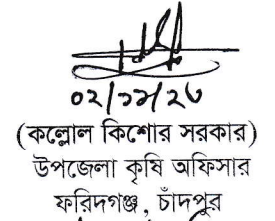 ০২/১১/২৩
(কল্লোল কিশোর সরকার)
উপজেলা কৃষি অফিসার
ফরিদগঞ্জ, চাঁদপুর